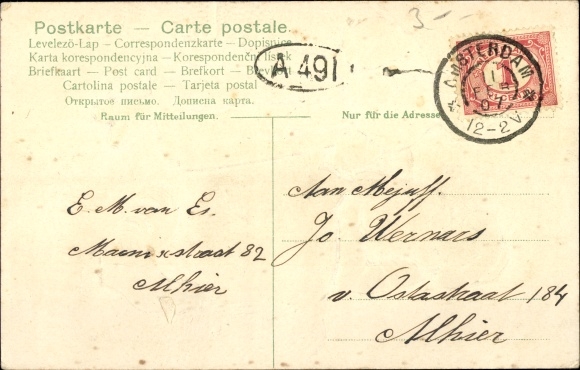 Postkarte – Carte postale.
Levelező-Lap – Correspondenzkarte – Dopisnice
Karta korespondencyjna – Korespondenční lístek
Briefkaart – Post card – Brefkort – Brevkort
Cartolina postale – Tarjeta postal
Открытое письмо. Дописна карта.
Raum für Mitteilungen.
Nur für die Adresse
3 –
A 491
AMSTERDAM
12-2V
1
E. M. van Es.
straat 82
Alhier
Aan Mejuff.
Jo. Wernars
v. Ostastraat 184
Alhier